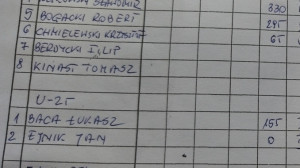 SŁAWOMIR 330
5 BOGACKI ROBERT 295
6 CHMIELEWSKI KRZYSZTOF 65
7 FILIP
8 KINAST TOMASZ
U-25
1 BACA ŁUKASZ 155
2 JAN 0